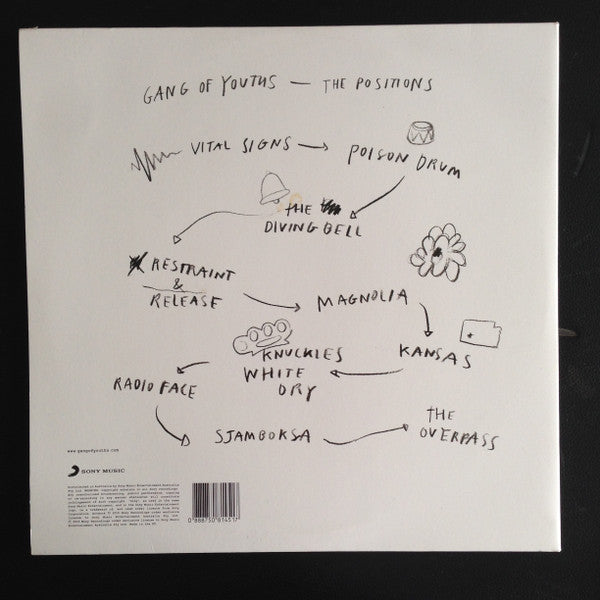 GANG OF YOUTHS — THE POSITIONS
VITAL SIGNS → POISON DRUM
THE
DIVING BELL
RESTRAINT
&
RELEASE
MAGNOLIA
KANSAS
KNUCKLES
WHITE
DRY
RADIO FACE
SJAMBOKSA
THE
OVERPASS
www.gangofyouths.com
SONY MUSIC